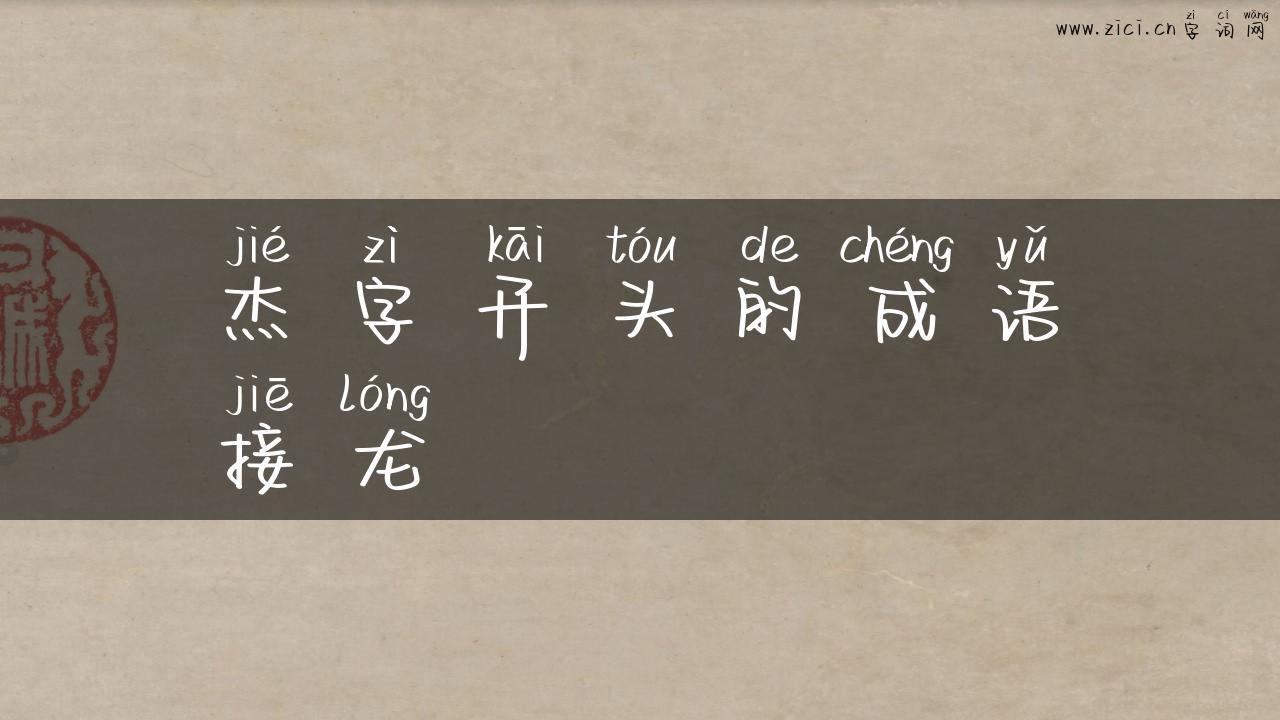 zì cí wǎng
www.zici.cn 字词网
jié zì kāi tóu de chéng yǔ
杰字开头的成语
jiē lóng
接龙